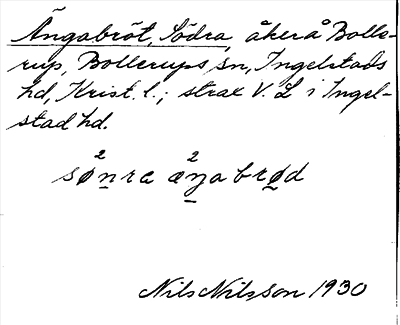 Ängabröt, Södra, åker å Bolle-
rup, Bollerups sn, Ingelstads
hd, Krist. l.; strax V. L i Ingel-
stad hd.
sø²n̲ra æ²ŋ̲abrø̲d
Nils Nilsson 1930